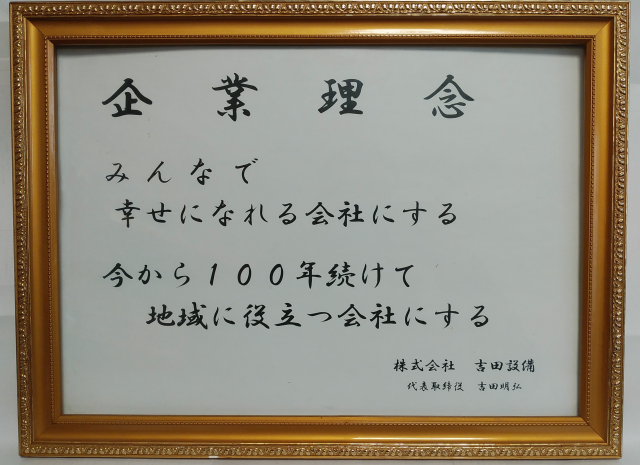 企業理念
みんなで
幸せになれる会社にする
今から１００年続けて
地域に役立つ会社にする
株式会社　吉田設備
代表取締役　吉田明弘